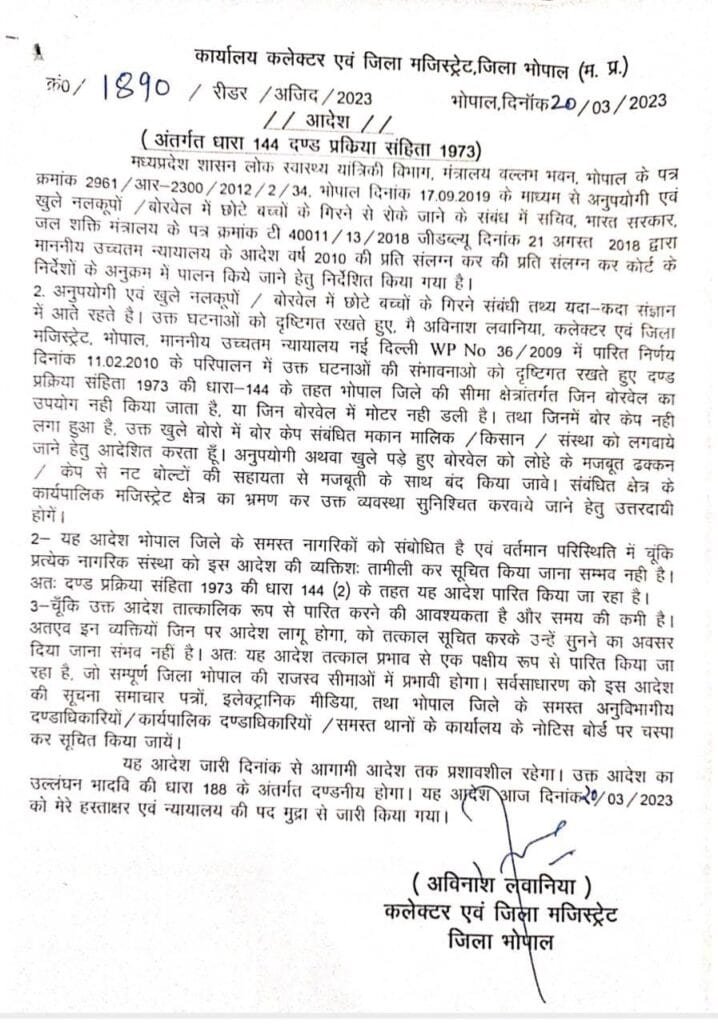 कार्यालय कलेक्टर एवं जिला मजिस्ट्रेट,जिला भोपाल (म. प्र.)
क्रं0/ 1890 / रीडर /अजिद/2023 भोपाल,दिनॉक20/03/2023
// आदेश //
(अंतर्गत धारा 144 दण्ड प्रकिया संहिता 1973)
मध्यप्रदेश शासन लोक स्वास्थ्य यांत्रिकी विभाग, मंत्रालय वल्लभ भवन, भोपाल के पत्र
क्रमांक 2961/आर-2300/2012/2/34, भोपाल दिनांक 17.09.2019 के माध्यम से अनुपयोगी एवं
खुले नलकूपों /बोरवेल में छोटे बच्चों के गिरने से रोके जाने के संबंध में सचिव, भारत सरकार,
जल शक्ति मंत्रालय के पत्र क्रमांक टी 40011/13/2018 जीडब्ल्यू दिनांक 21 अगस्त 2018 द्वारा
माननीय उच्चतम न्यायालय के आदेश वर्ष 2010 की प्रति संलग्न कर की प्रति संलग्न कर कोर्ट के
निर्देशों के अनुक्रम में पालन किये जाने हेतु निर्देशित किया गया है।
2. अनुपयोगी एवं खुले नलकूपों / बोरवेल में छोटे बच्चों के गिरने संबंधी तथ्य यदा-कदा संज्ञान
में आते रहते है। उक्त घटनाओं को दृष्टिगत रखते हुए, मै अविनाश लवानिया, कलेक्टर एवं जिला
मजिस्ट्रेट, भोपाल, माननीय उच्चतम न्यायालय नई दिल्ली WP No 36/2009 में पारित निर्णय
दिनांक 11.02.2010 के परिपालन में उक्त घटनाओं की संभावनाओ को दृष्टिगत रखते हुए दण्ड
प्रक्रिया संहिता 1973 की धारा-144 के तहत भोपाल जिले की सीमा क्षेत्रांतर्गत जिन बोरवेल का
उपयोग नही किया जाता है, या जिन बोरवेल में मोटर नही डली है। तथा जिनमें बोर केप नही
लगा हुआ है, उक्त खुले बोरो में बोर केप संबंधित मकान मालिक /किसान / संस्था को लगवाये
जाने हेतु आदेशित करता हूँ। अनुपयोगी अथवा खुले पड़े हुए बोरवेल को लोहे के मजबूत ढक्कन
/ केप से नट बोल्टों की सहायता से मजबूती के साथ बंद किया जावे। संबंधित क्षेत्र के
कार्यपालिक मजिस्ट्रेट क्षेत्र का भ्रमण कर उक्त व्यवस्था सुनिश्चित करवाये जाने हेतु उत्तरदायी
होगें।
2- यह आदेश भोपाल जिले के समस्त नागरिकों को संबोधित है एवं वर्तमान परिस्थिति में चूंकि
प्रत्येक नागरिक संस्था को इस आदेश की व्यक्तिशः तामीली कर सूचित किया जाना सम्भव नही है।
अतः दण्ड प्रक्रिया संहिता 1973 की धारा 144 (2) के तहत यह आदेश पारित किया जा रहा है।
3-चूँकि उक्त आदेश तात्कालिक रूप से पारित करने की आवश्यकता है और समय की कमी है।
अतएव इन व्यक्तियों जिन पर आदेश लागू होगा, को तत्काल सूचित करके उन्हें सुनने का अवसर
दिया जाना संभव नहीं है। अतः यह आदेश तत्काल प्रभाव से एक पक्षीय रूप से पारित किया जा
रहा है, जो सम्पूर्ण जिला भोपाल की राजस्व सीमाओं में प्रभावी होगा। सर्वसाधारण को इस आदेश
की सूचना समाचार पत्रों, इलेक्ट्रानिक मीडिया, तथा भोपाल जिले के समस्त अनुविभागीय
दण्डाधिकारियों/कार्यपालिक दण्डाधिकारियों /समस्त थानों के कार्यालय के नोटिस बोर्ड पर चस्पा
कर सूचित किया जायें।
यह आदेश जारी दिनांक से आगामी आदेश तक प्रशावशील रहेगा। उक्त आदेश का
उल्लंघन भादवि की धारा 188 के अंतर्गत दण्डनीय होगा। यह आदेश आज दिनांक20/03/2023
को मेरे हस्ताक्षर एवं न्यायालय की पद मुद्रा से जारी किया गया।
(अविनाश लवानिया)
कलेक्टर एवं जिला मजिस्ट्रेट
जिला भोपाल